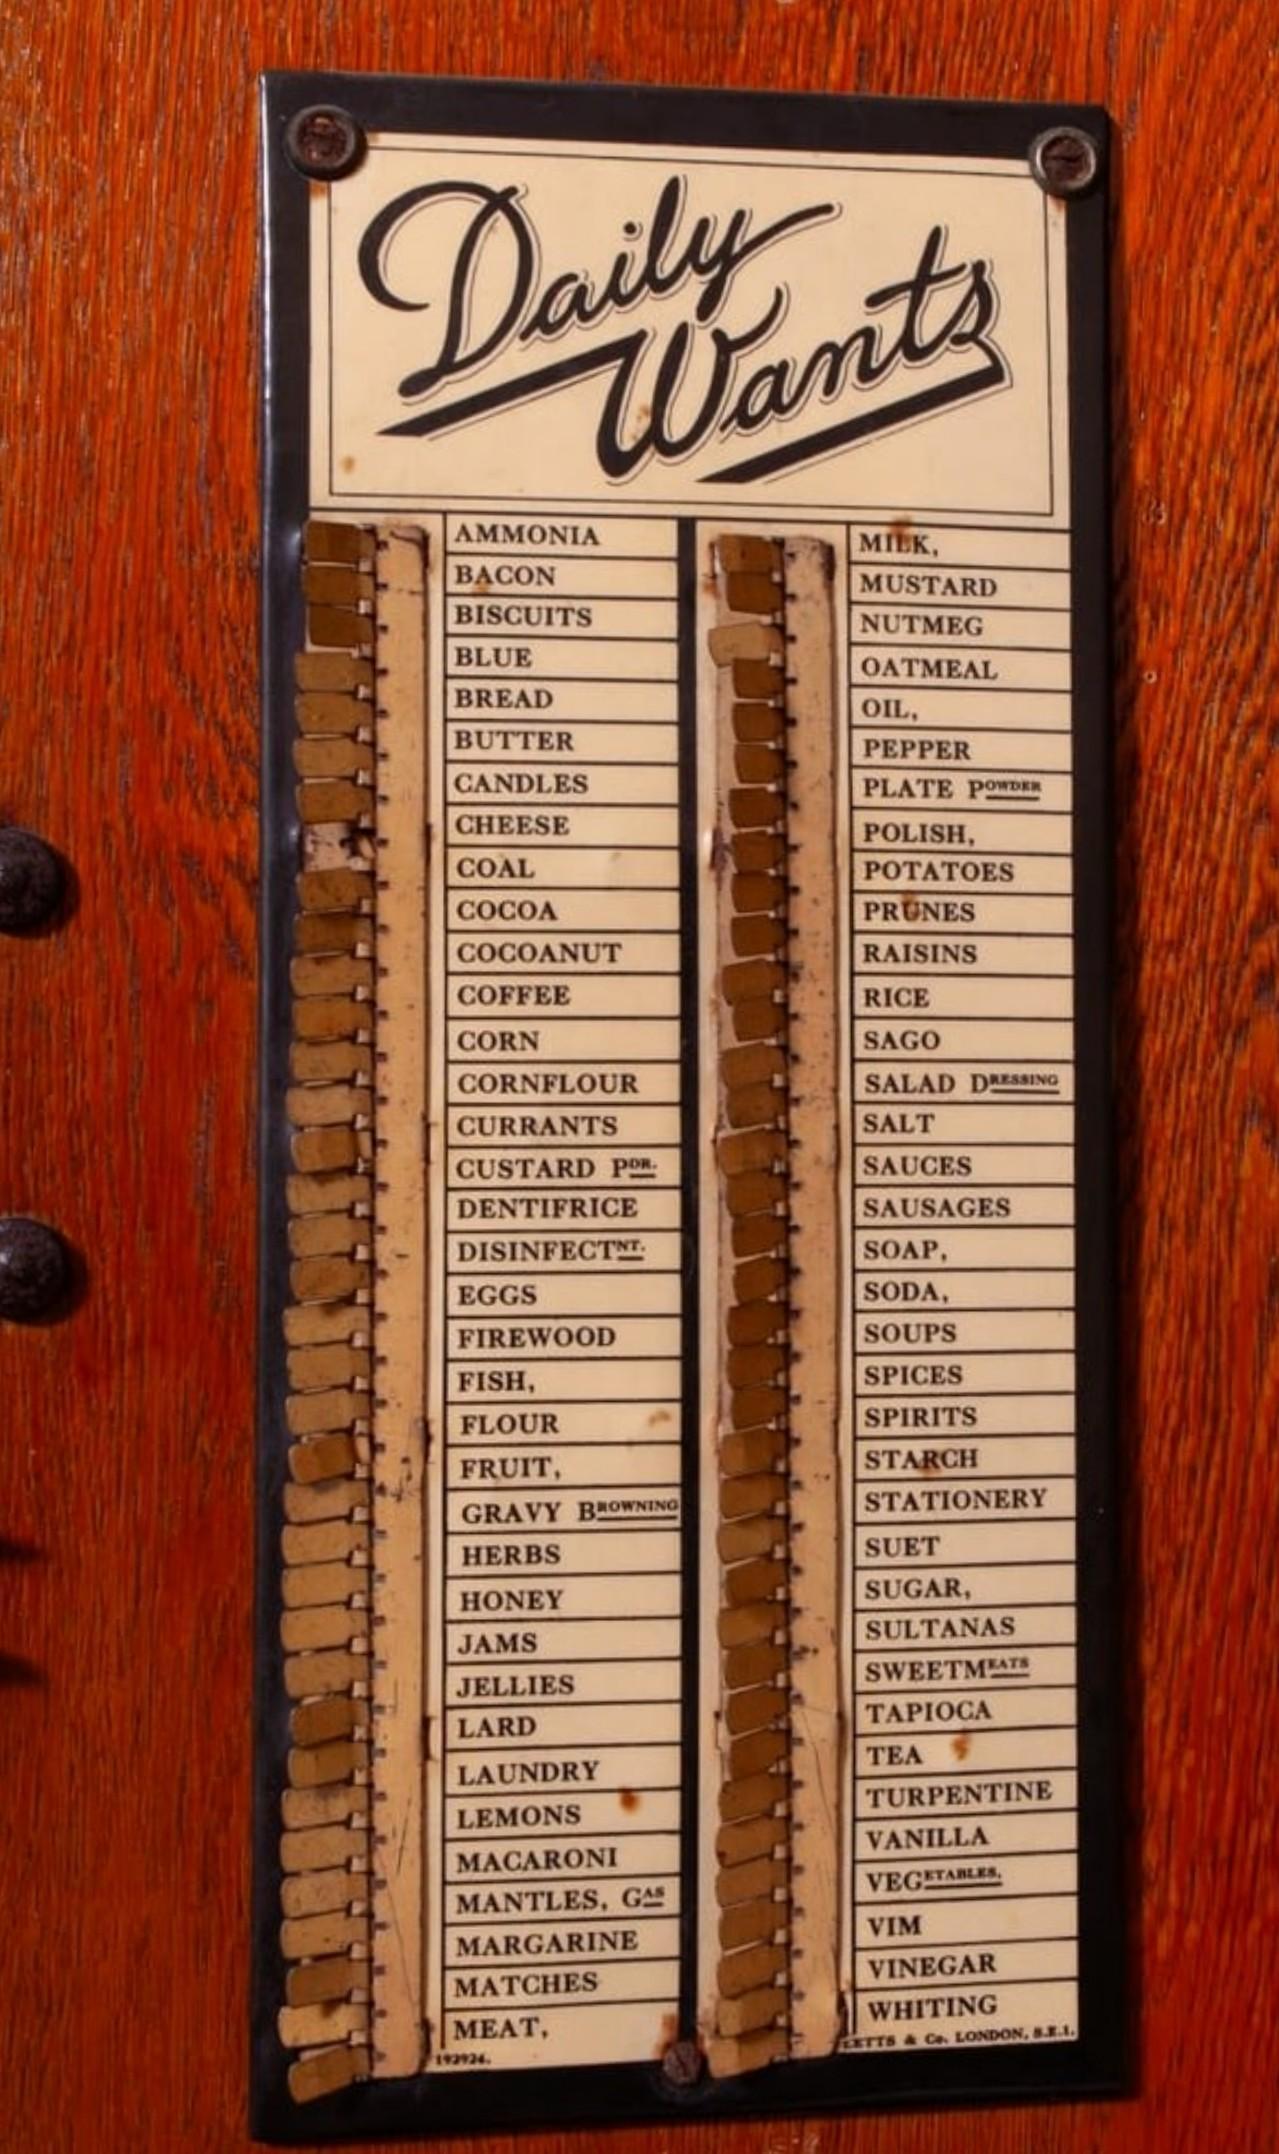 Daily
Wants
AMMONIA
BACON
BISCUITS
BLUE
BREAD
BUTTER
CANDLES
CHEESE
COAL
COCOA
COCOANUT
COFFEE
CORN
CORNFLOUR
CURRANTS
CUSTARD PDR.
DENTIFRICE
DISINFECTNT.
EGGS
FIREWOOD
FISH,
FLOUR
FRUIT,
GRAVY BROWNING
HERBS
HONEY
JAMS
JELLIES
LARD
LAUNDRY
LEMONS
MACARONI
MANTLES, GAS
MARGARINE
MATCHES
MEAT,
192924.
MILK,
MUSTARD
NUTMEG
OATMEAL
OIL,
PEPPER
PLATE POWDER
POLISH,
POTATOES
PRUNES
RAISINS
RICE
SAGO
SALAD DRESSING
SALT
SAUCES
SAUSAGES
SOAP,
SODA,
SOUPS
SPICES
SPIRITS
STARCH
STATIONERY
SUET
SUGAR,
SULTANAS
SWEETMEATS
TAPIOCA
TEA
TURPENTINE
VANILLA
VEGETABLES.
VIM
VINEGAR
WHITING
LETTS & Co. LONDON, S.E.1.